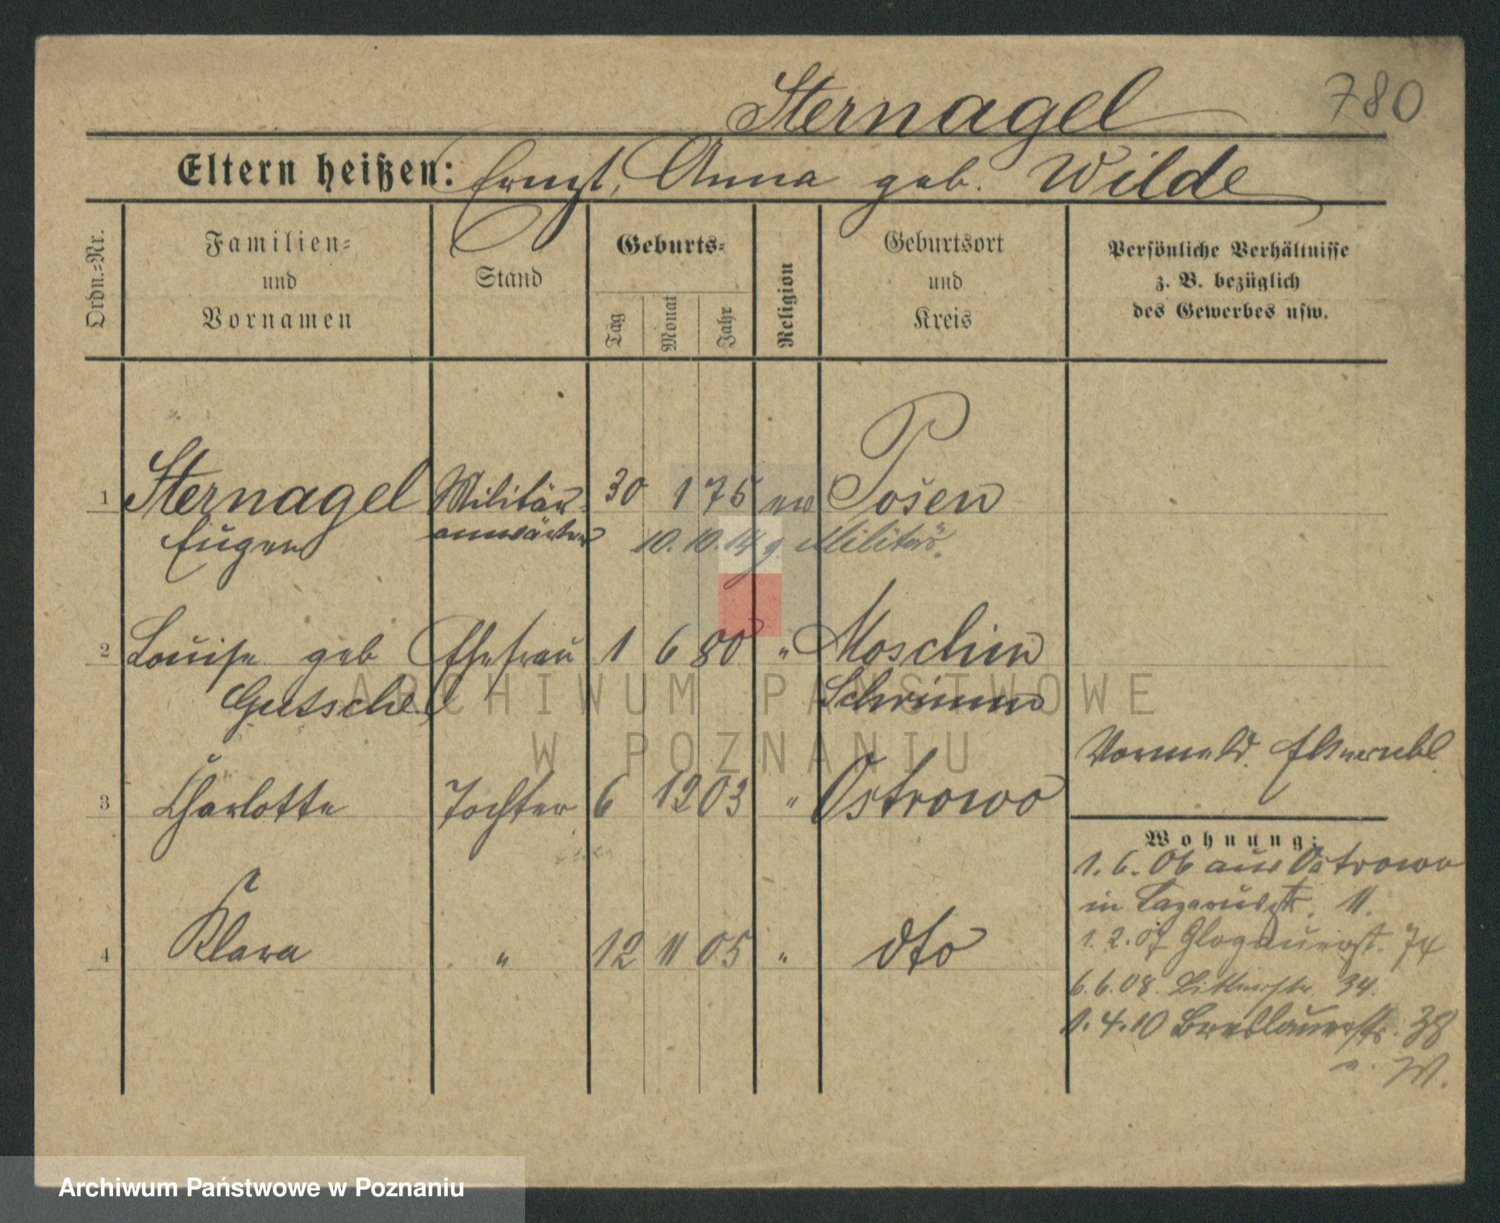 780
Sternagel
Eltern heißen: Ernst, Anna geb. Wilde
Ordn.=Nr.
Familien=
und
Vornamen
Stand
Geburts=
Tag
Monat
Jahr
Religion
Geburtsort
und
Kreis
Persönliche Verhältnisse
z. B. bezüglich
des Gewerbes usw.
1 Sternagel Militär- 30 1 75 ev Posen
Eugen anwärter 10. 10. 14 z. Militär.
2 Louise geb Ehefrau 1 6 80 " Moschin
Gutsche Schrimm
3 Charlotte Tochter 6 12 03 " Ostrowo
4 Klara " 12 11 05 " dto
Wohnung:
1. 6. 06 aus Ostrowo
in Lazarusstr. 11.
1. 2. 07 Glogauerst. 74
6. 6. 08. 34.
1. 4. 10 Breslauerstr. 38
ARCHIWUM PAŃSTWOWE
W POZNANIU
Archiwum Państwowe w Poznaniu